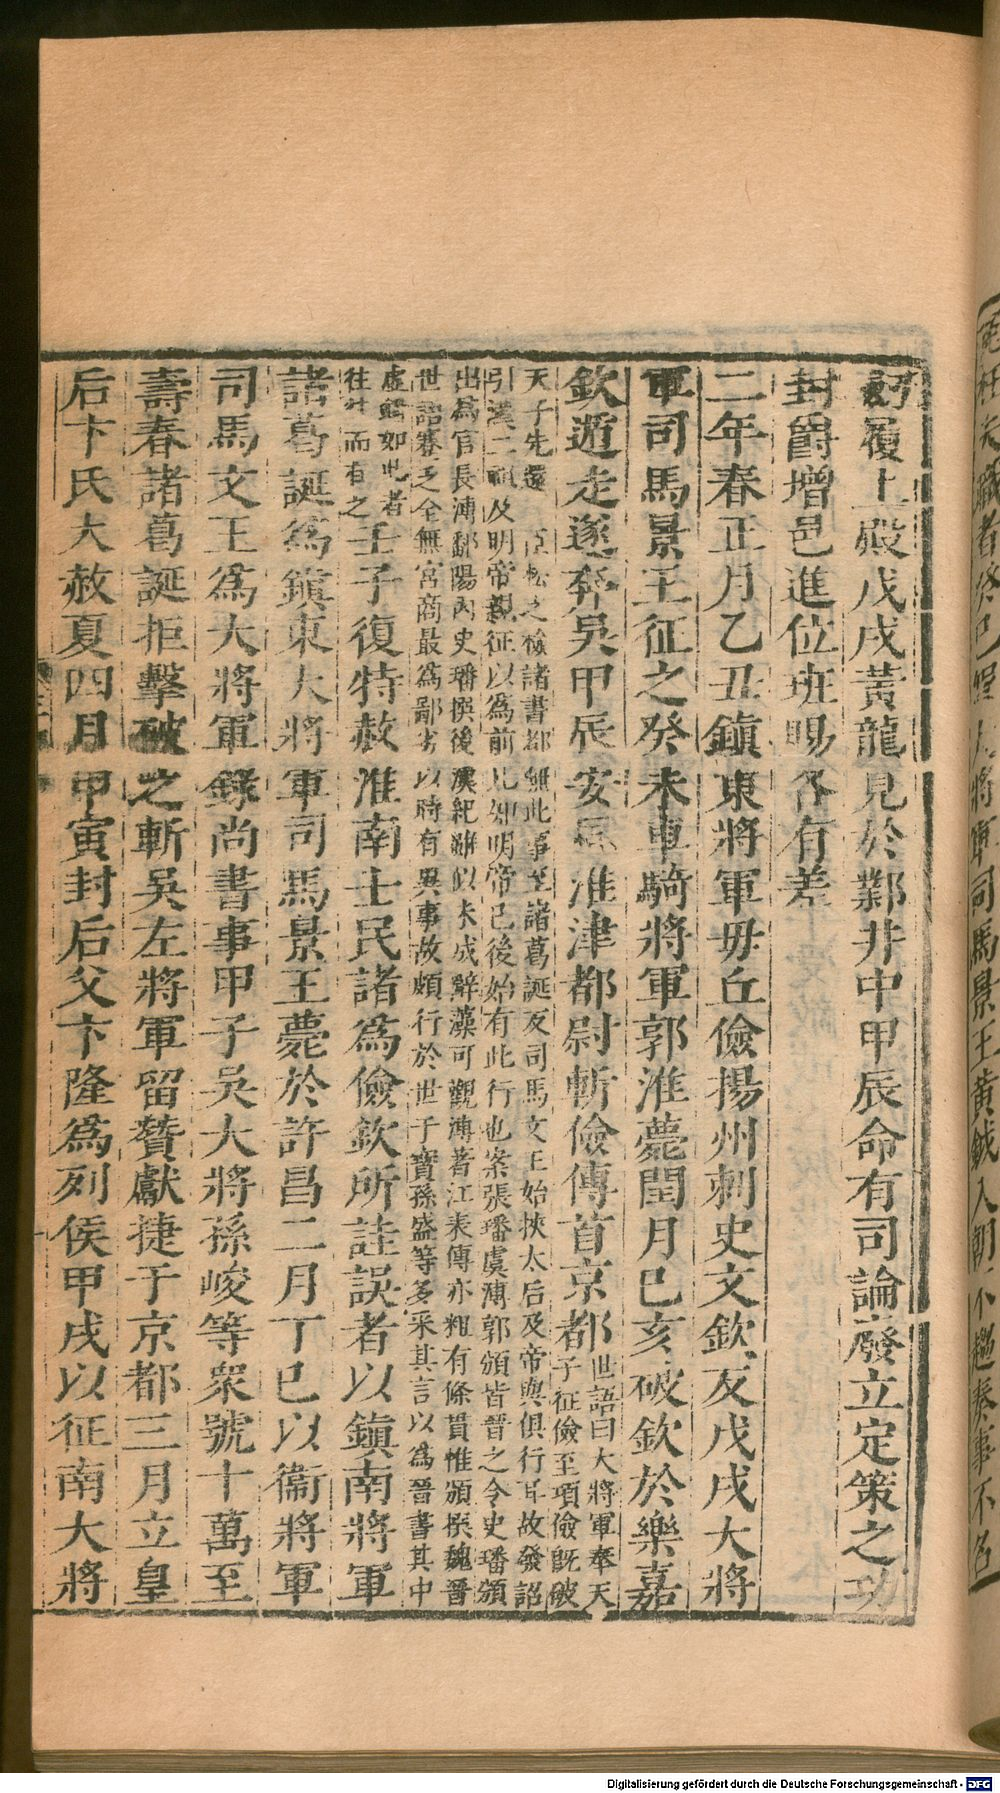 劒履上殿戊戌黃龍見於鄴井中甲辰命有司論廢立定策之功
封爵增邑進位班賜各有差
二年春正月乙丑鎮東將軍毋丘儉揚州刺史文欽反戊戌大將
軍司馬景王征之癸未車騎將軍郭淮薨閏月己亥破欽於樂嘉
欽遁走遂奔吳甲辰安風淮津都尉斬儉傳首京都世語曰大將軍奉天
子征儉至項儉旣破
天子先還 臣松之檢諸書都無此事至諸葛誕反司馬文王始挾太后及帝與俱行耳故發詔
引漢二祖及明帝親征以為前比知明帝已後始有此行也案張璠虞溥郭頒皆晉之令史璠頒
出為官長溥鄱陽內史璠撰後漢紀雖似未成辭藻可觀溥著江表傳亦粗有條貫惟頒撰魏晉
世語蹇乏全無宮商最為鄙劣以時有異事故頗行於世干寶孫盛等多采其言以為晉書其中
虛錯如此者
往往而有之壬子復特赦淮南士民諸為儉欽所詿誤者以鎮南將軍
諸葛誕為鎮東大將軍司馬景王薨於許昌二月丁巳以衞將軍
司馬文王為大將軍錄尚書事甲子吳大將孫峻等衆號十萬至
壽春諸葛誕拒擊破之斬吳左將軍留贊獻捷于京都三月立皇
后卞氏大赦夏四月甲寅封后父卞隆為列侯甲戌以征南大將
者癸巳 大將軍司馬景王黃鉞入朝不趨奏事不名
Digitalisierung gefördert durch die Deutsche Forschungsgemeinschaft - DFG